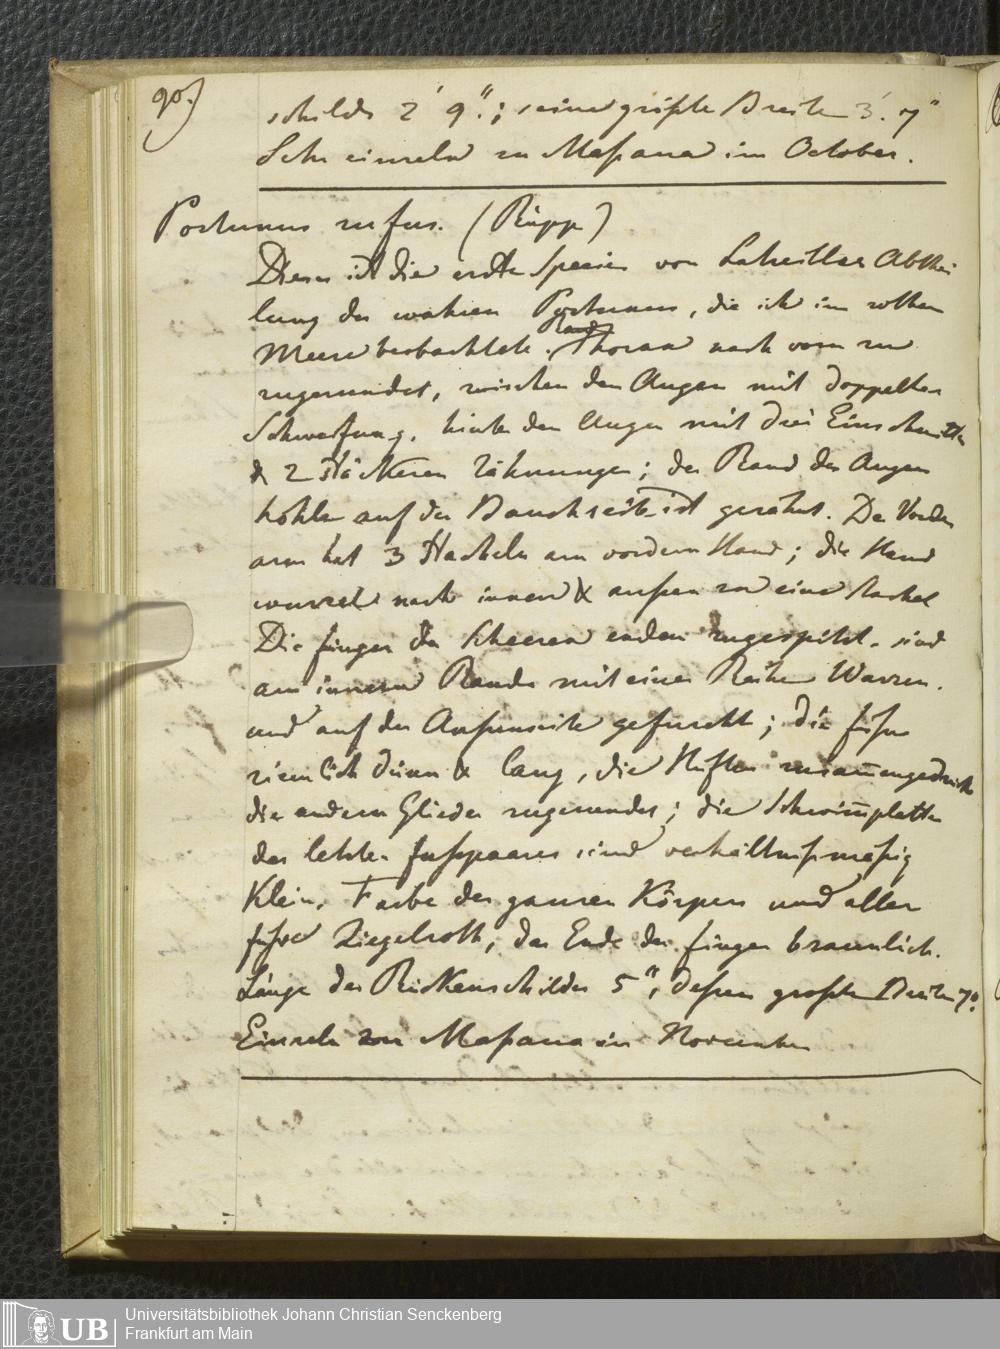 90.)
schilds 2' 9"; seine größte Breite 3'. 7"
Sehr einzeln zu Massaua im October.
Portunus rufus. (Rüpp)
Dieses ist die erste Species von Latreilles Abthei
lung der wahren Portunus, die ich im rothen
Meere beobachtete. Rand Thorax nach vorn zu
zugerundet, zwischen den Augen mit doppelter
Schweifung, hinter den Augen mit drei Einschnitten
& 2 stärkeren Zähnungen; der Rand der Augen
höhle auf der Bauchseite ist gezähnt. Der Vorder
arm hat 3 Stacheln am vordern Rand; die Hand
wurzel nach innen & außen zu eine Stachel
Die finger der Scheeren enden zugespitzt, sind
am innern Rande mit einer Reihe Warzen.
und auf der Außenseite gefurcht; die füße
ziemlich dünn & lang, die Hüften zusam̅engedrückt
die andern Glieder zugerundet; die Schwim̅platten
des letzten fußpaares sind verhältnißmäßig
Klein. Farbe des ganzen Körpers und aller
füße Ziegelroth, das Ende der finger braunlich.
Länge des Rückenschildes 5", dessen größte Breite 7".
Einzeln zu Massaua im November
Universitätsbibliothek Johann Christian Senckenberg
Frankfurt am Main
UB